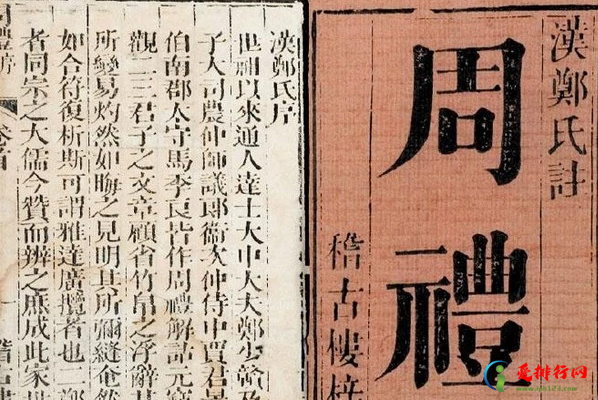 漢鄭氏註
周禮
稽古樓梓
漢鄭氏序
世祖以來通人達士大中大夫鄭少贛及
子大司農仲師議郎衛次仲侍中賈君景
伯南郡太守馬季長皆作周禮解詁元竊
觀二三君子之文章顧省竹帛之浮辭其
所變易灼然如晦之見明其所彌縫奄然
如合符復析斯可謂雅達廣攬者也二
者同宗之大儒今贊而辨之庶成此家世
周禮序 卷首 一 稽古樓
爱排行网